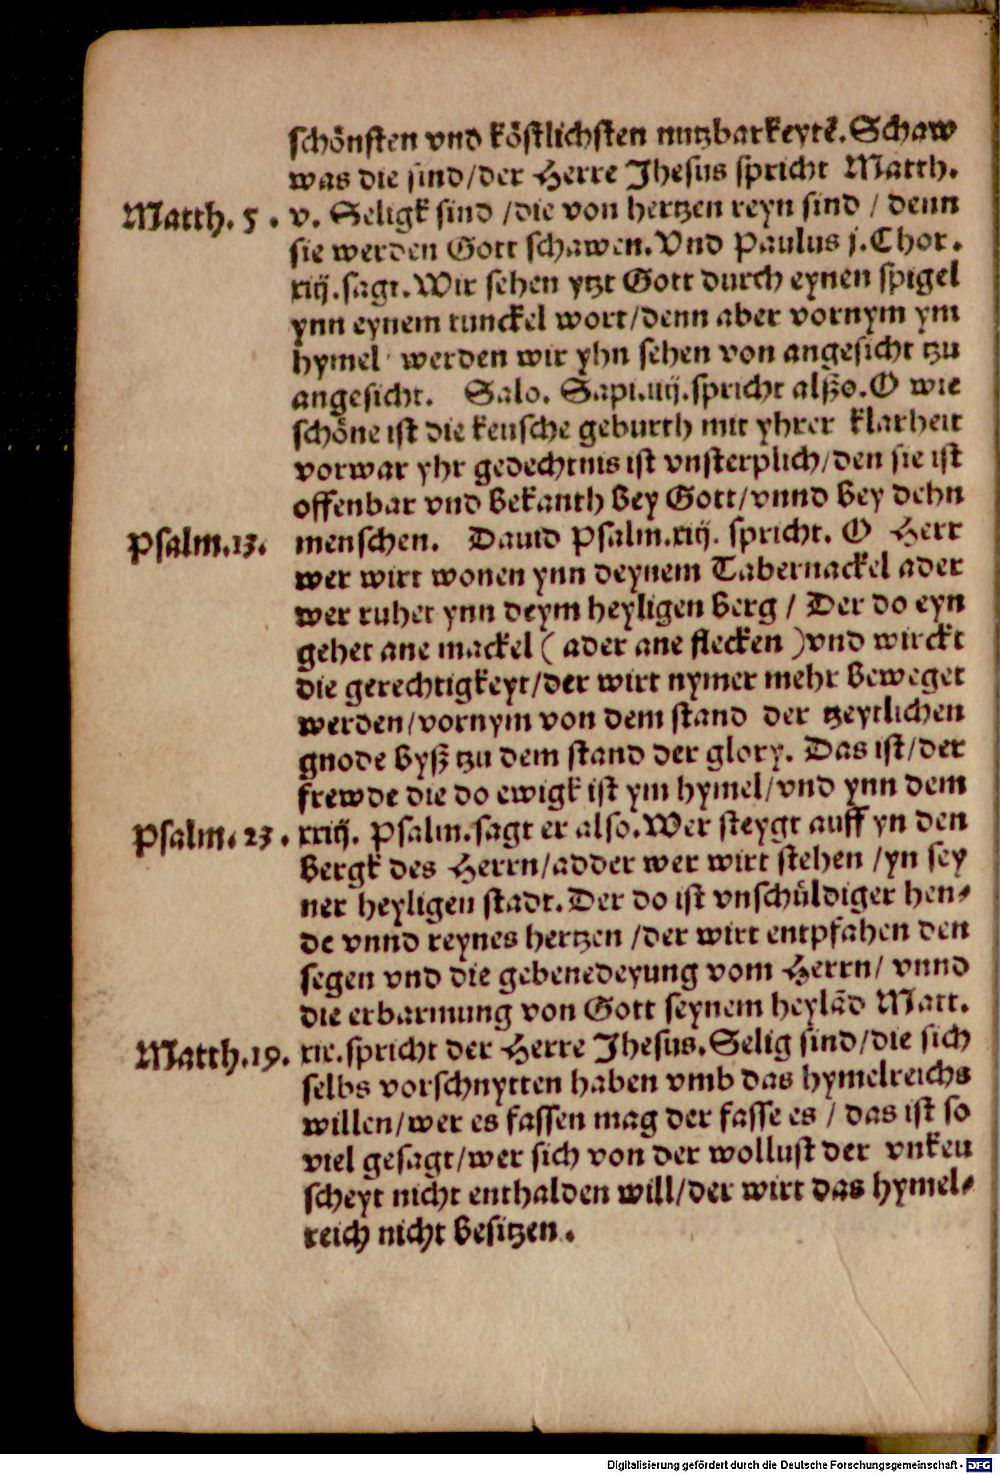 schönsten vnd köstlichsten nutzbarkeytẽ. Schaw
was die sind/der Herre Jhesus spricht Matth.
Matth. 5. v. Seligk sind /die von hertzen reyn sind / denn
sie werden Gott schawen. Vnd Paulus j. Chor.
xiij. sagt. Wir sehen ytzt Gott durch eynen spigel
ynn eynem tunckel wort/denn aber vornym ym
hymel werden wir yhn sehen von angesicht tzu
angesicht. Salo. Sapi. iiij. spricht alßo. O wie
schöne ist die keusche geburth mit yhrer klarheit
vorwar yhr gedechtnis ist vnsterplich/den sie ist
offenbar vnd bekanth bey Gott/vnnd bey dehn
Psalm. 13. menschen. Dauid Psalm. xiij. spricht. O Herr
wer wirt wonen ynn deynem Tabernackel ader
wer ruhet ynn deym heyligen berg / Der do eyn
gehet ane mackel ( ader ane flecken ) vnd wirckt
die gerechtigkeyt/der wirt nymer mehr beweget
werden/vornym von dem stand der tzeytlichen
gnode byß tzu dem stand der glory. Das ist/der
frewde die do ewigk ist ym hymel/vnd ynn dem
Psalm. 23. xxiij. Psalm. sagt er also. Wer steygt auff yn den
bergk des Herrn/adder wer wirt stehen /yn sey
ner heyligen stadt. Der do ist vnschüldiger hen⸗
de vnnd reynes hertzen /der wirt entpfahen den
segen vnd die gebenedeyung vom Herrn/ vnnd
die erbarmung von Gott seynem heylãd Matt.
Matth. 19. xix. spricht der Herre Jhesus. Selig sind/die sich
selbs vorschnytten haben vmb das hymelreichs
willen/wer es fassen mag der fasse es / das ist so
viel gesagt/wer sich von der wollust der vnkeu
scheyt nicht enthalden will/der wirt das hymel⸗
reich nicht besitzen.
Digitalisierung gefördert durch die Deutsche Forschungsgemeinschaft - DFG